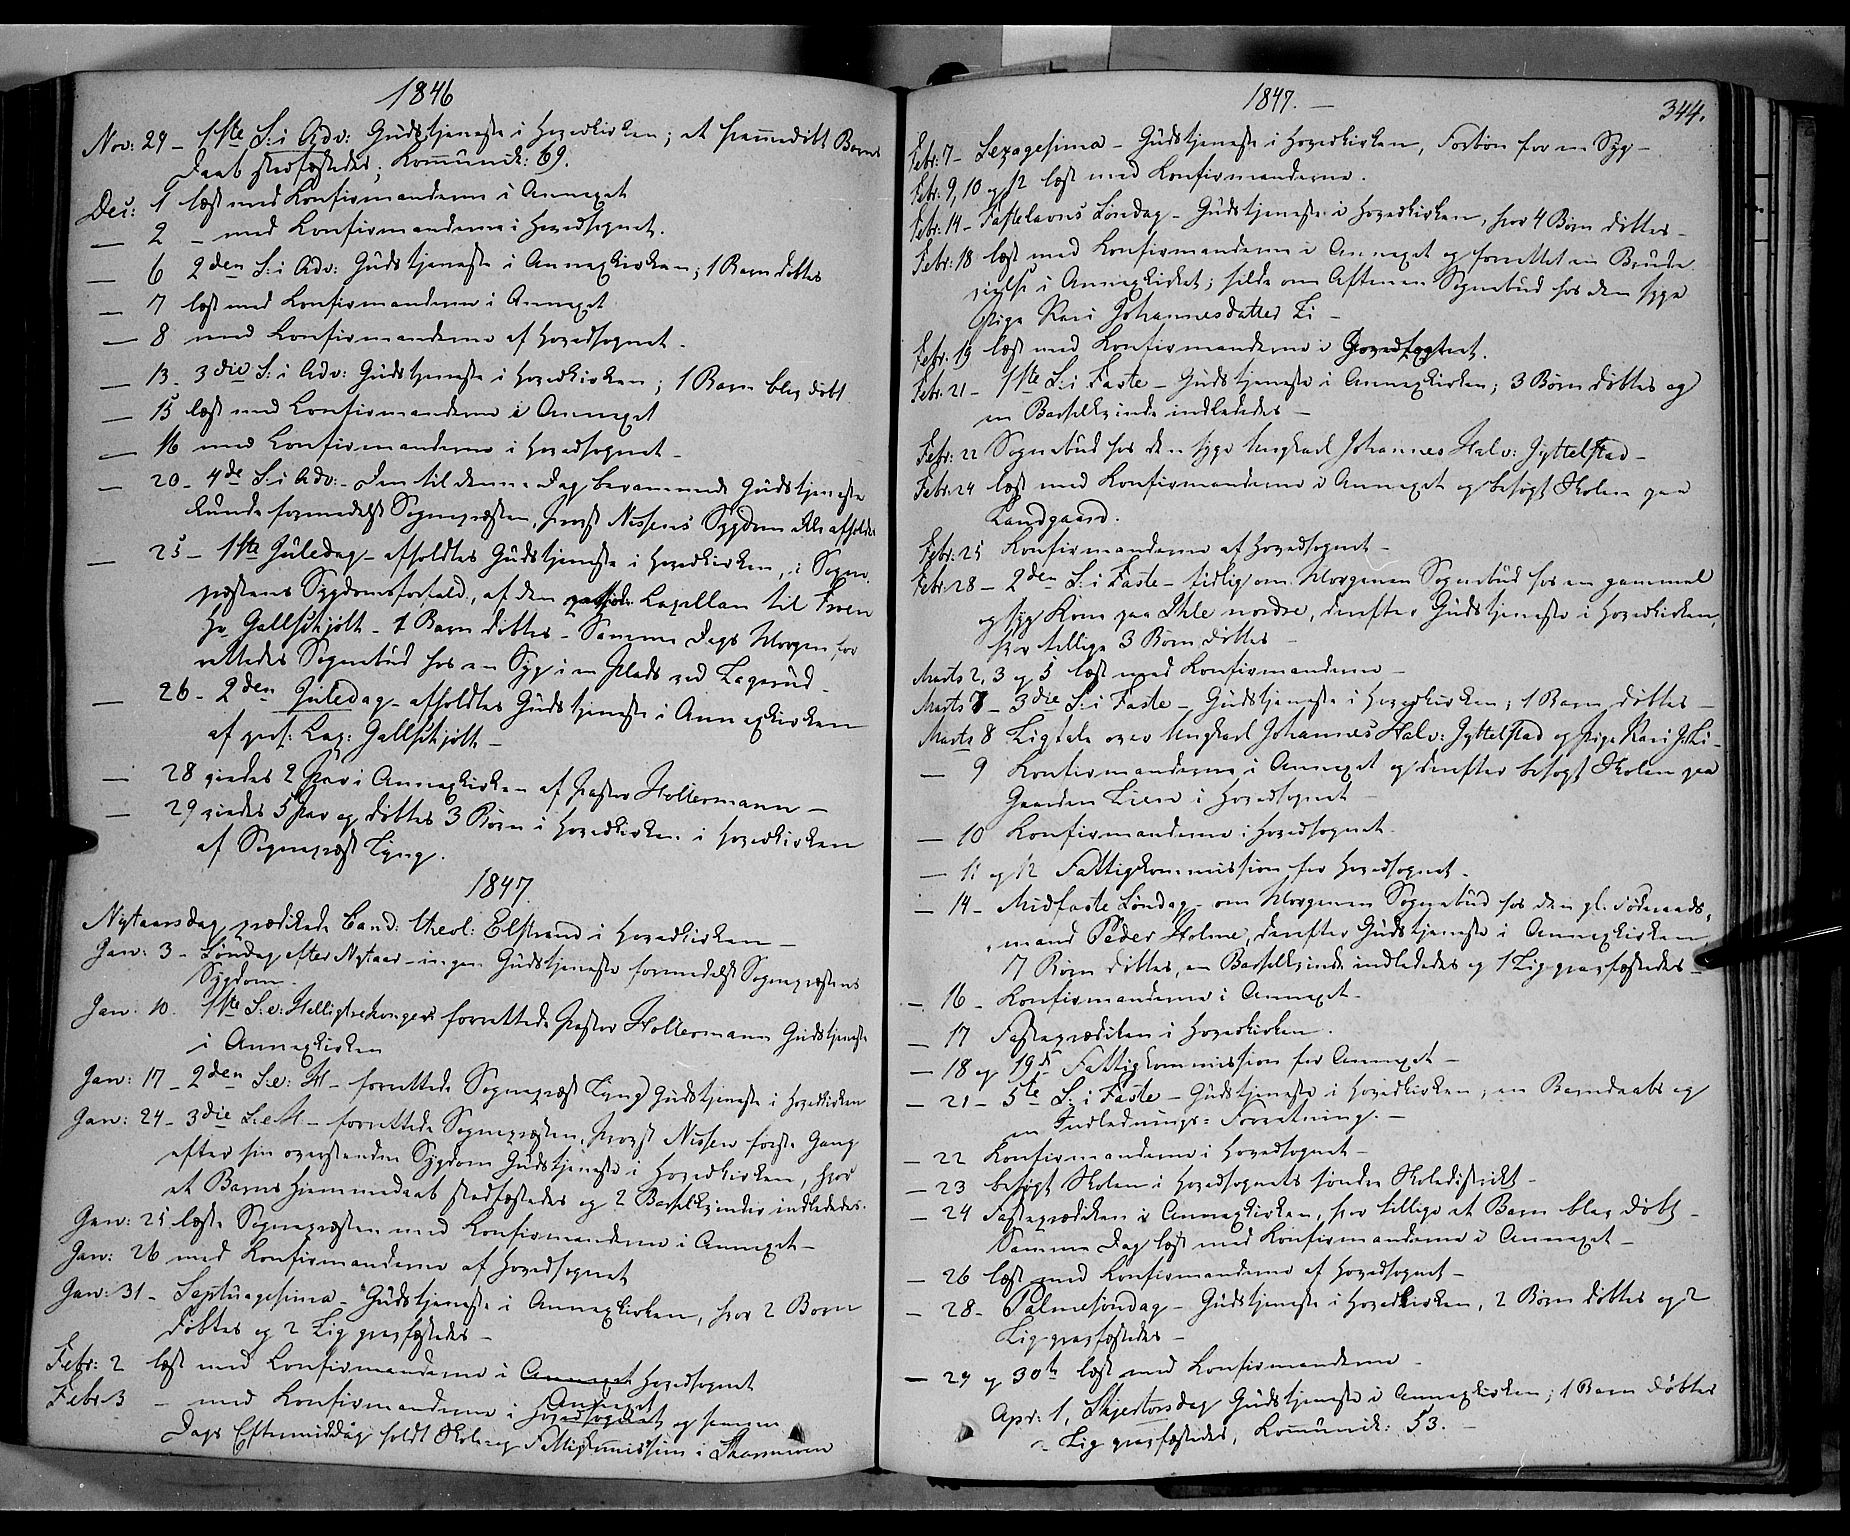 1846
Nov: 29 - 1ste S: i Adv: Gudstjeneste i Hovedkirken; et hjemmedøbt Barns
Daab stadfæstedes; Kommunik: 69.
Dec: 1 læst med Konfirmanderne i Annexet
— 2 - med Konfirmanderne i Hovedsognet.
— 6 2den S: i Adv: Gudstjeneste i Annexkirken; 1 Barn døbtes
— 7 læst med Konfirmanderne i Annexet
— 8 med Konfirmanderne af Hovedsognet -
— 13 - 3die S: i Adv: Gudstjeneste i Hovedkirken; 1 Barn blev døbt
— 15 læst med Konfirmanderne i Annexet
— 16 med Konfirmanderne i Hovedsognet -
— 20 - 4de S: i Adv: - Den til denne Dag berammede Gudstjeneste
kunde formedelst Sognepræsten, Provst Nissens Sygdom ikke afholdes
— 25 - 1ste Juledag - afholdtes Gudstjeneste i Hovedkirken, i Sogne-
præstens Sygdomsforfald, af den Kapellan til Froen
Hr Gallschjøtt - 1 Barn døbtes - Samme Dags Morgen for-
rettedes Sognebud hos en Syg i en Plads ved Lagerud -
— 26 - 2den Juledag - afholdtes Gudstjeneste i Annexkirken
af Kap: Gallschjøtt -
— 28 viedes 2 Par i Annexkirken af Pastor Holtermann -
— 29 viedes 5 Par og døbtes 3 Børn i Hovedkirken i Hovedkirken
af Sognepræst Lyng.
1847.
Nytaarsdag prædikede Cand: theol: Elstrand i Hovedkirken -
Jan: 3 - Søndag efter Nytaar - ingen Gudstjeneste formedelst Sognepræstens
Sygdom -
Jan: 10. 1ste S. e: Helligtrekonger forrettede Pastor Holtermann Gudstjeneste
i Annexkirken
Jan: 17 - 2den S. e: H - forrettede Sognepræst Lyng Gudstjeneste i Hovedkirken
Jan: 24 - 3die S. e H - forrettede Sognepræsten, Provst Nissen første Gang
efter sin overstandne Sygdom Gudstjeneste i Hovedkirken, hvor
et Barns Hjemmedaab stadfæstedes og 2 Barselkvinder indlededes.
Jan: 25 læste Sognepræsten med Konfirmanderne i Annexet -
Jan: 26 med Konfirmanderne af Hovedsognet
Jan: 31 - Septuagesima - Gudstjeneste i Annexkirken, hvor 2 Børn
døbtes og 2 Lig gravfæstedes -
Febr: 2 læst med Konfirmanderne i Annexet Hovedsognet
Febr 3 - med Konfirmanderne i Hovedsognet Annexet og samme
Dags Eftermiddag holdt Skole og Fattigkommission i
1847. -
344.
Febr: 7 - Sexagesima - Gudstjeneste i Hovedkirken, Forbøn for en Syg -
Febr: 9, 10 og 12 læst med Konfirmanderne.
Febr: 14 - Fastelavns Søndag - Gudstjeneste i Hovedkirken, hvor 4 Børn døbtes -
Febr: 18 læst med Konfirmanderne i Annexet og forrettet en Brude-
vielse i Annexkirken; silde om Aftenen Sognebud hos den syge
Pige Kari Johannesdatter Li -
Febr: 19 læst med Konfirmanderne i Hovedsognet.
Febr: 21 - 1ste S: i Faste - Gudstjeneste i Annexkirken; 3 Børn døbtes og
en Barselkvinde indlededes -
Febr: 22 Sognebud hos den syge Ungkarl Johannes Halv: Jyttelstad -
Febr: 24 læst med Konfirmanderne i Annexet og besøgt Skolen paa
Landgaard.
Febr: 25 Konfirmanderne af Hovedsognet -
Febr: 28 - 2den S: i Faste - tidlig om Morgenen Sognebud hos en gammel
og syg Kone paa Ihle nordre, derefter Gudstjeneste i Hovedkirken,
hvor tillige 3 Børn døbtes -
Marts 2, 3 og 5 læst med Konfirmanderne -
Marts 7 - 3die S: i Faste - Gudstjeneste i Hovedkirken; 1 Barn døbtes -
Marts 8 Ligtale over Ungkarl Johannes Halv: Jyttelstad og Pige Kari J. Li -
— 9 Konfirmanderne i Annexet og derefter besøgt Skolen paa
Gaarden Lien i Hovedsognet -
— 10 Konfirmanderne i Hovedsognet.
— 11 og 12 Fattigkommission for Hovedsognet -
— 14 - Midfaste Søndag - om Morgenen Sognebud hos den gl: Føderaads-
mand Peder Holme, derefter Gudstjeneste i Annexkirken,
7 Børn døbtes, en Barselkvinde indlededes og 1 Lig gravfæstedes -
— 16 - Konfirmanderne i Annexet -
— 17 Fasteprædiken i Hovedkirken.
— 18 og 19de Fattigkommission for Annexet -
— 21 - 5te S: i Faste - Gudstjeneste i Hovedkirken, en Barnedaabs og
en Indlednings-Forretning. -
— 22 Konfirmanderne i Hovedsognet -
— 23 besøgt Skolen i Hovedsognets søndre Skoledistrikt -
— 24 Fasteprædiken i Annexkirken, hvor tillige et Barn blev døbt -
Samme Dag læst med Konfirmanderne i Annexet -
— 26 læst med Konfirmanderne af Hovedsognet -
— 28 - Palmesøndag - Gudstjeneste i Hovedkirken, 2 Børn døbtes og 2
Lig gravfæstedes -
— 29 og 30te læst med Konfirmanderne -
Apr: 1, Skjertorsdag Gudstjeneste i Annexkirken; 1 Barn døbtes
Lig gravfæstedes, Kommunik: 53. -